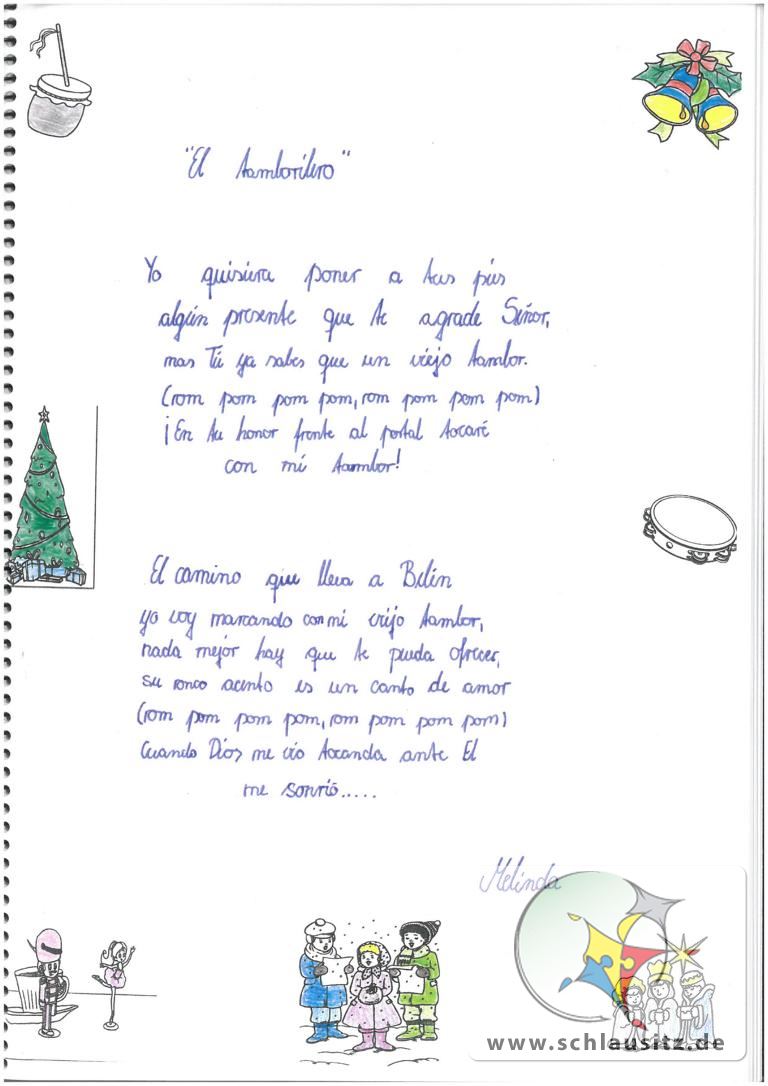 "El tamborilero"
Yo quisiera poner a tus pies
algún presente que te agrade Señor,
mas Tú ya sabes que un viejo tambor.
(rom pom pom pom, rom pom pom pom)
¡En tu honor frente al portal tocaré
con mi tambor!
El camino que lleva a Belén
yo voy marcando con mi viejo tambor,
nada mejor hay que te pueda ofrecer,
su ronco acento es un canto de amor
(rom pom pom pom, rom pom pom pom)
Cuando Dios me vio tocanda ante El
me sonrió.....
Melinda
www.schlausitz.de